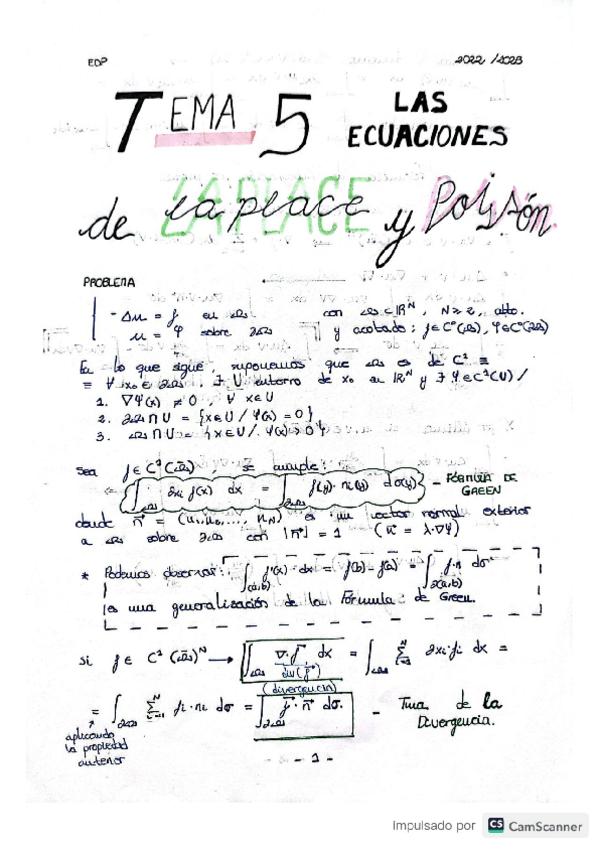 EDP 2022/2023
TEMA 5 LAS ECUACIONES
de LAPLACE y Poisson.
PROBLEMA
-Δu = f en Ω con Ω ⊂ ℝᴺ, N ≥ 2, abto.
u = φ sobre ∂Ω y acotado; f ∈ C⁰(Ω), φ ∈ C⁰(∂Ω)
En lo que sigue, suponemos que Ω es de C¹ ≡
≡ ∀ x₀ ∈ ∂Ω, ∃ U entorno de x₀ en ℝᴺ y ∃ Ψ ∈ C¹(U) /
1. ∇Ψ(x) ≠ 0, ∀ x ∈ U
2. ∂Ω ∩ U = {x ∈ U / Ψ(x) = 0}
3. Ω ∩ U = {x ∈ U / Ψ(x) > 0}
Sea f ∈ C¹(Ω̄), se cumple:
∫_Ω ∂xᵢ f(x) dx = ∫_∂Ω f(y) · nᵢ(y) dσ(y) - FÓRMULA DE GREEN
donde n⃗ = (n₁, n₂, ..., n_N) es un vector normal exterior
a Ω sobre ∂Ω con |n⃗| = 1 (n⃗ = λ·∇Ψ)
* Podemos observar: ∫_(a,b) f'(x) · dx = f(b) - f(a) = ∫_∂(a,b) f·n dσ
es una generalización de la Fórmula de Green.
si f ∈ C¹(Ω̄)ᴺ → ∫_Ω ∇·f⃗ dx = ∫_Ω Σᵢ₌₁ᴺ ∂xᵢ fᵢ dx =
div(f⃗)
(divergencia)
= ∫_∂Ω Σᵢ₌₁ᴺ fᵢ · nᵢ dσ = ∫_∂Ω f⃗ · n⃗ dσ. - Tma de la
Divergencia.
aplicando
la propiedad
anterior
- 1 -
Impulsado por CS CamScanner